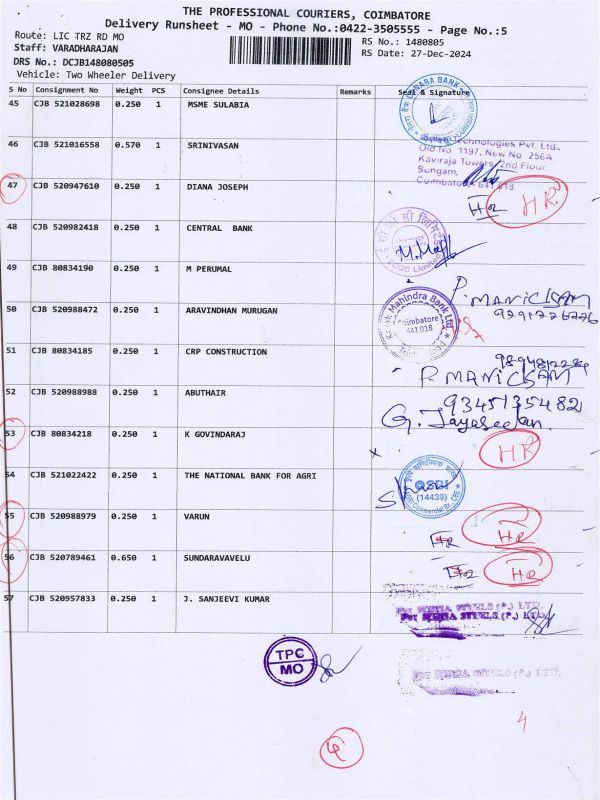 THE PROFESSIONAL COURIERS, COIMBATORE
Delivery Runsheet - MO - Phone No.:0422-3505555 - Page No.:5
Route: LIC TRZ RD MO
RS No.: 1480805
Staff: VARADHARAJAN
RS Date: 27-Dec-2024
DRS No.: DCJB148080505
Vehicle: Two Wheeler Delivery
S No Consignment No Weight PCS Consignee Details Remarks Seal & Signature
45 CJB 521028698 0.250 1 MSME SULABIA
CANARA BANK
46 CJB 521016558 0.570 1 SRINIVASAN
Technologies Pvt. Ltd.,
Old No. 1197, New No. 256A,
Kaviraja Towers, 2nd Floor,
Sungam,
Coimbatore - 641 018.
47 CJB 520947610 0.250 1 DIANA JOSEPH
HR HR
48 CJB 520982418 0.250 1 CENTRAL BANK
49 CJB 80834190 0.250 1 M PERUMAL
P. MANICKAM
50 CJB 520988472 0.250 1 ARAVINDHAN MURUGAN
Kotak Mahindra Bank Ltd
Coimbatore
641 018
51 CJB 80834185 0.250 1 CRP CONSTRUCTION
P. MANICKAM
52 CJB 520988988 0.250 1 ABUTHAIR
9345135482
G. Jayaseelan.
53 CJB 80834218 0.250 1 K GOVINDARAJ
HR
54 CJB 521022422 0.250 1 THE NATIONAL BANK FOR AGRI
SBI
(14439)
55 CJB 520988979 0.250 1 VARUN
HR HR
56 CJB 520789461 0.650 1 SUNDARAVAVELU
HR HR
57 CJB 520957833 0.250 1 J. SANJEEVI KUMAR
STEELS (P.) LTD.
TPC
MO
4